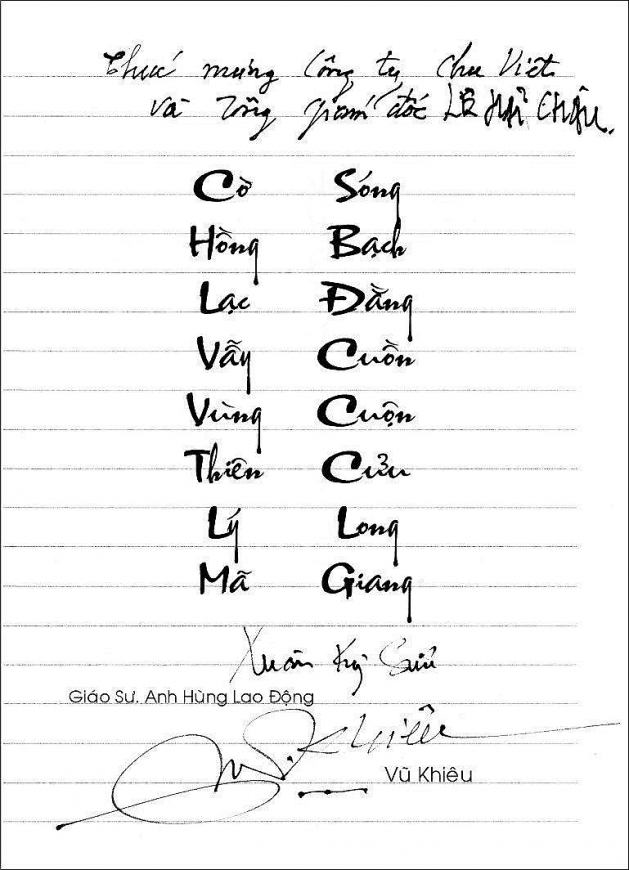 Chúc mừng Công ty Chu Việt
và Tổng giám đốc LÊ HẢI CHÂU.
Cờ Hồng Lạc Vẫy Vùng Thiên Lý Mã
Sóng Bạch Đằng Cuồn Cuộn Cửu Long Giang
Xuân Kỷ Sửu
Giáo Sư. Anh Hùng Lao Động
V. Khiêu
Vũ Khiêu